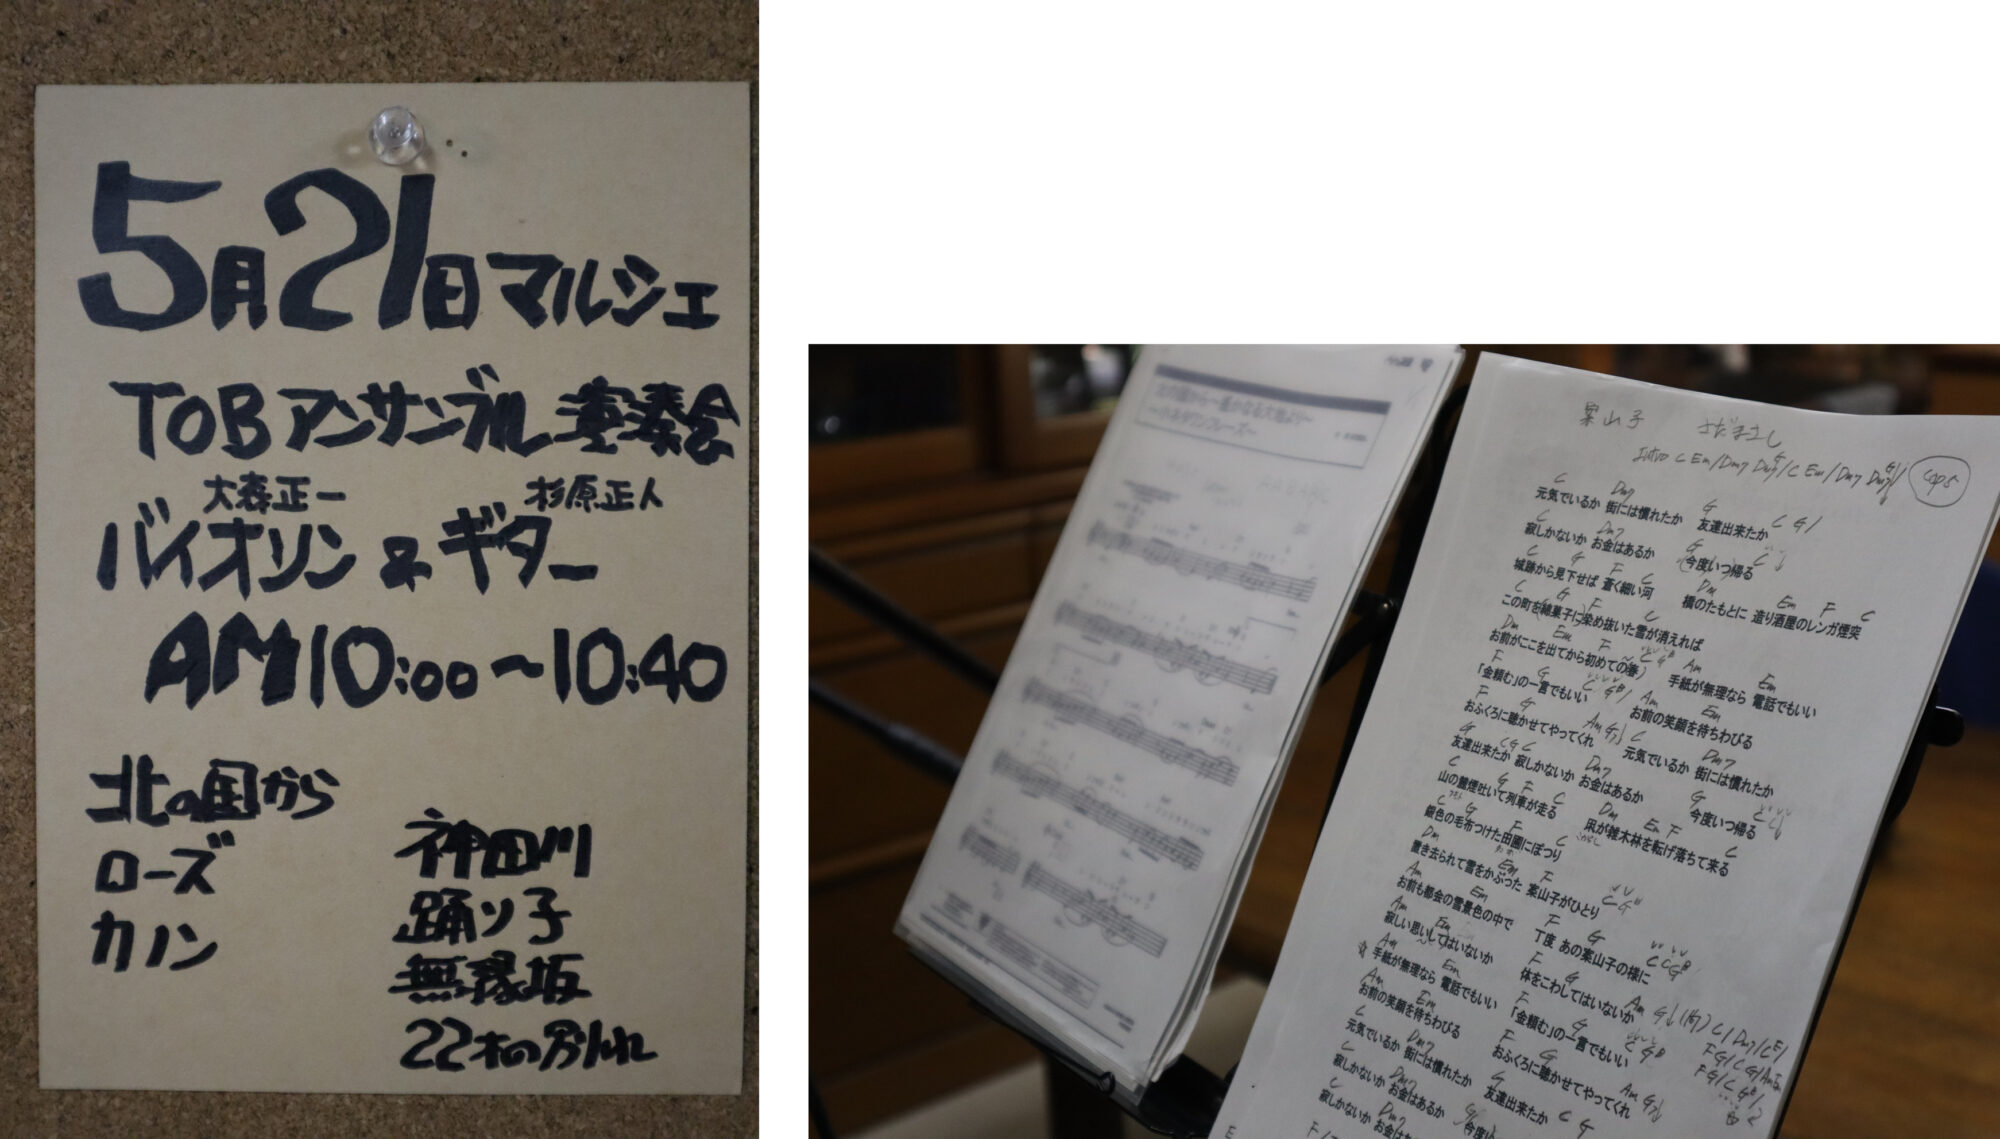 5月21日マルシェ
TOBアンサンブル演奏会
大森正一 杉原正人
バイオリン & ギター
AM10:00〜10:40
北の国から
ローズ
カノン
神田川
踊り子
無縁坂
22才の別れ
北の国から〜遥かなる大地より〜
案山子 さだまさし
Intro C Em/Dm7
cap5
C Dm7 G C G/
元気でいるか 街には慣れたか 友達出来たか
C Dm7 G C
寂しかないか お金はあるか 今度いつ帰る
C G F C Dm Em F C
城跡から見下せば 蒼く細い河 橋のたもとに 造り酒屋のレンガ煙突
C G F C
この町を綿菓子に染め抜いた雪が消えれば
Dm Em F C G Am Em
お前がここを出てから初めての春 手紙が無理なら 電話でもいい
F G C G Am Em
「金頼む」の一言でもいい お前の笑顔を待ちわびる
F G Am G C Dm7
おふくろに聴かせてやってくれ 元気でいるか 街には慣れたか
G C G C Dm7 G
友達出来たか 寂しかないか お金はあるか 今度いつ帰る
C G F C Dm Em F C
山の麓煙吐いて列車が走る 凩が雑木林を転げ落ちて来る
C G F C
銀色の毛布つけた田圃にぽつり
Dm Em F C G
置き去られて雪をかぶった 案山子がひとり
Am Em F G
お前も都会の雪景色の中で 丁度 あの案山子の様に
Am Em F G Am
寂しい思いしてはいないか 体をこわしてはいないか
Am Em F G
手紙が無理なら 電話でもいい 「金頼む」の一言でもいい
Am Em F G Am
お前の笑顔を待ちわびる おふくろに聴かせてやってくれ
C Dm7 G C G
元気でいるか 街には慣れたか 友達出来たか
C Dm7
寂しかないか お金はあるか 今度い
C Dm7
寂しかないか お金はあ